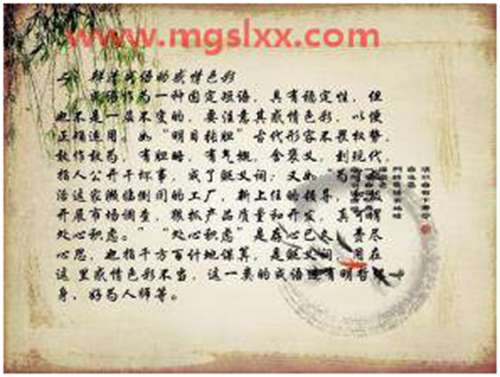 www.mgslxx.com
辨清成语的感情色彩
成语作为一种固定短语，具有稳定性，但
也不是一层不变的，要注意其感情色彩，以便
正确运用。如“明目张胆”古代形容不畏权势，
敢作敢为，有胆略，有气魄，含褒义，到现代
指人公开干坏事，成了贬义词；又如“为
治这家濒临倒闭的工厂，新上任的领导，积极
开展市场调查，狠抓产品质量和开发，真可谓
处心积虑。”“处心积虑”是存心已久，费尽
心思，也指千方百计地谋算，是贬义词，用在
这里感情色彩不当，这一类的成语还有明哲保
身、好为人师等。